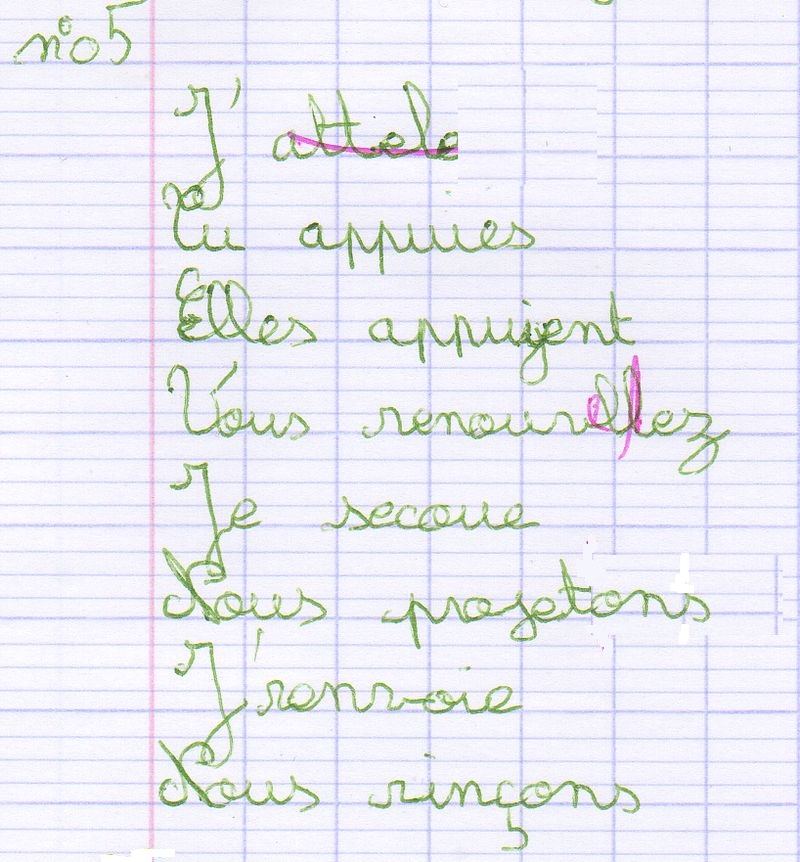 n°5
J' attele
Tu appuies
Elles appuyent
Vous renouvellez
Je secoue
Nous projetons
J'renvoie
Nous rinçons